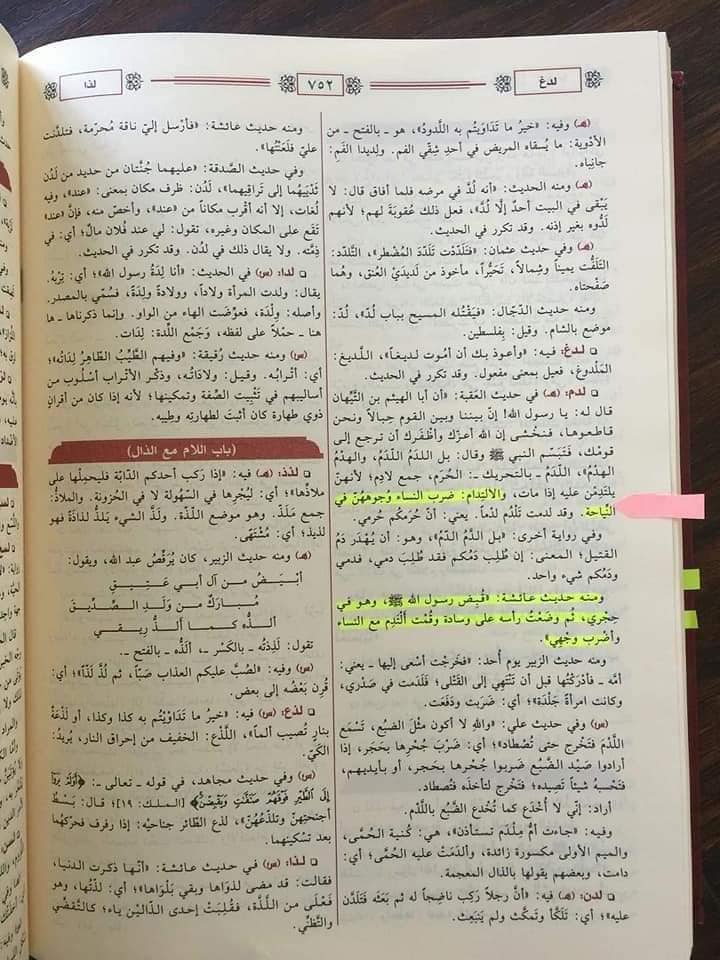 لدغ
٧٥٢
لذا
(هـ) وفيه: «خيرُ ما تَدَاوَيتُم به اللَّدودُ»، هو ـ بالفتح ـ من
الأدْوية: ما يُسقاه المريض في أحدِ شِقَّي الفم. ولَدِيدا الفَم:
جانِباه.
(هـ) ومنه الحديث: «أنه لُدَّ في مرضه فلما أفاق قال: لا
يَبْقى في البيت أحدٌ إلَّا لُدَّ»، فعل ذلك عُقوبَةً لهم؛ لأنهم
لَدُّوه بغير إذنه. وقد تكرر في الحديث.
(هـ) وفي حديث عثمان: «فتَلَدَّدْت تَلَدُّدَ المُضْطر»، التَّلَدُّد:
التَّلَفُّت يميناً وشِمالاً، تَحَيُّراً، مأخوذ من لَديدَيِ العُنق، وهُما
صَفْحتاه.
ومنه حديث الدَّجَّال: «فيَقْتُله المسيح بباب لُدٍّ»، لُدّ:
موضع بالشام. وقيل: بفِلسطين.
لدغ: فيه: «وأعوذ بك أن أموت لَدِيغاً»، اللَّديغ:
المَلْدوغ، فَعيل بمعنى مفعول. وقد تكرر في الحديث.
لدم: (هـ) في حديث العقَبة: «أن أبا الهيْثم بن التَّيِّهان
قال له: يا رسول الله! إنَّ بيننا وبين القوم حِبالاً ونحن
قاطعوها، فنَخْشى إن الله أعزَّك وأظْفَرك أن ترجع إلى
قومك، فتَبَسَّم النبي ﷺ وقال: بل اللَّدَمُ اللَّدَمُ، والهَدْمُ
الهدْمُ»، اللَّدَمُ ـ بالتحريك ـ: الحُرَم، جمع لادِم؛ لأنهنَّ
يلتَدِمْن عليه إذا مات، والالتِدَام: ضرب النساء وُجوهَهُنّ في
النِّياحة. وقد لدمت تَلْدُم لدْماً. يعني: أنّ حُرَمكُم حُرمي.
وفي رواية أخرى: «بل الدَّمُ الدَّمُ»، وهو: أن يُهْدَر دَمُ
القتيل؛ المعنى: إن طُلِب دمُكم فقد طُلِب دمي، فدمي
ودَمُكم شيء واحد.
ومنه حديث عائشة: «قُبِض رسول الله ﷺ، وهو في
حِجْري، ثم وضَعْتُ رأسه على وسادة وقُمْت ألْتَدِم مع النساء
وأضْرب وجْهِي».
ومنه حديث الزبير يوم أُحد: «فخَرجت أسْعى إليها ـ يعني:
أمَّه ـ فأدْرَكتُها قبل أن تَنْتَهِي إلى القَتْلى؛ فلَدَمت في صَدْري،
وكانت امرأةً جَلْدَة»؛ أي: ضَربَت ودَفَعت.
(س) وفي حديث علي: «واللهِ لا أكون مثْلَ الضَّبُع، تَسْمَع
اللَّدْمَ فتَخْرج حتى تُصْطاد»؛ أي: ضَرْبَ جُحْرِها بحَجَر، إذا
أرادوا صَيْد الضَّبُع ضَربوا جُحْرها بحجَر، أو بأيديهم،
فتَحْسِبه شيئاً تَصِيده؛ فتَخْرج لتأخذه فتُصطاد.
أراد: إني لا أُخْدَع كما تُخْدع الضَّبُع باللَّدْم.
وفيه: «جاءت أمُّ مِلْدَمٍ تستأذن»، هي: كُنية الحُمَّى،
والميم الأولى مكسورة زائدة، وألدَمَتْ عليه الحُمَّى؛ أي:
دامت، وبعضهم يقولها بالذال المعجمة.
لدن: (هـ) فيه: «أنَّ رجلاً رَكِب ناضِحاً له ثم بَعَثه فَتَلدَّن
عليه»؛ أي: تَلَكَّأ وتَمكَّث ولم يَنبَعِثْ.
ومنه حديث عائشة: «فأرْسل إليّ ناقة مُحرّمة، فتَلدَّنت
عليّ فلَعَنْتُها».
وفي حديث الصَّدقة: «عليهما جُنَّتان من حديد من لَدُن
ثَدْيَيْهما إلى تَراقِيهما»، لَدُن: ظرف مكان بمعنى: «عند»، وفيه
لُغات، إلا أنه أقْرب مكاناً من «عند»، وأخصّ منه، فإنَّ «عند»
تَقَع على المكان وغيره، تقول: لي عند فُلان مالٌ؛ أي: في
ذِمَّته. ولا يقال ذلك في لدُن. وقد تكرر في الحديث.
لدا: (س) في الحديث: «أنا لِدَةُ رسول الله»؛ أي: تِرْبُهُ.
يقال: ولَدت المرأة ولاداً، وولادةً ولِدَةً، فسُمِّي بالمصدر.
وأصله: وِلْدَة، فعوِّضَت الهاء من الواو. وإنما ذكرناها ـ ها
هنا ـ حمْلاً على لفظه، وجَمْع اللِّدة: لِدَات.
(س) ومنه حديث رُقيقة: «وفيهم الطَّيِّبُ الطَّاهِرُ لِدَاتُه»؛
أي: أتْرابُه. وقيل: ولاداتُه، وذكْر الأتْراب أسْلوب من
أساليبهم في تَثْبِيت الصِّفة وتمكينها؛ لأنه إذا كان من أقرانٍ
ذوي طهارة كان أثبتَ لطهارته وطِيبه.
(باب اللام مع الذال)
لذذ: (هـ) فيه: «إذا رَكب أحدكم الدَّابَّة فليحمِلْها على
ملاذِّها»؛ أي: ليُجْرِها في السُّهُولة لا في الحُزونة. والملاذُّ:
جمع مَلَذّ. وهو موضع اللّذَّة. ولَذَّ الشيء يَلَذُّ لَذاذَةً فهو
لَذيذ؛ أي: مُشْتَهًى.
(هـ) ومنه حديث الزبير، كان يُرَقّصُ عبد الله، ويقول:
أبْيَضُ من آل أبي عَتِيقِ
مُبارَكٌ من وَلَدِ الصِّدِّيقِ
ألَذُّه كما ألَذُّ رِيقي
تقول: لَذِذتُه ـ بالكَسْر ـ، ألَذُّه ـ بالفتح ـ.
(س) وفيه: «لصُبَّ عليكم العذاب صَبّاً، ثم لُذَّ لَذّاً»؛ أي:
قُرِن بَعْضُه إلى بعض.
لذع: (س) فيه: «خيرُ ما تَدَاوَيْتُم به كذا وكذا، أو لَذْعَةٌ
بنارٍ تُصيب ألماً»، اللَّذْع: الخفيف من إحراق النار، يُريدُ:
الكَيّ.
(س) وفي حديث مجاهد، في قوله ـ تعالى ـ: ﴿أَوَلَمْ يَرَوْا
إِلَى الطَّيْرِ فَوْقَهُمْ صَافَّاتٍ وَيَقْبِضْنَ﴾ [الملك: ١٩] قال: بَسْطُ
أجنحتِهنَّ وتلذُّعُهنّ»، لذع الطّائر جناحيْه: إذا رفرف فحرّكهُما
بعد تسْكينهما.
لذا: (س) في حديث عائشة: «أنّها ذكرت الدنيا،
فقالت: قد مضى لذوَاها وبقي بَلْوَاها»؛ أي: لذَّتُها، وهو
فَعْلَى من اللَّذَّة، فقُلِبَتْ إحدى الذّالَيْن ياء؛ كالتَّقَضِّي
والتَّظنِّي.